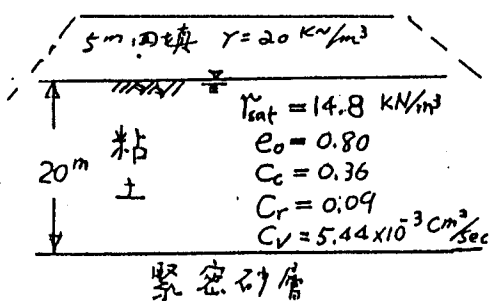 5m回填 γ=20 KN/m³
γsat = 14.8 KN/m³
e₀ = 0.80
Cc = 0.36
Cr = 0.09
Cv = 5.44×10⁻³ cm²/sec
20m
粘土
緊密砂層